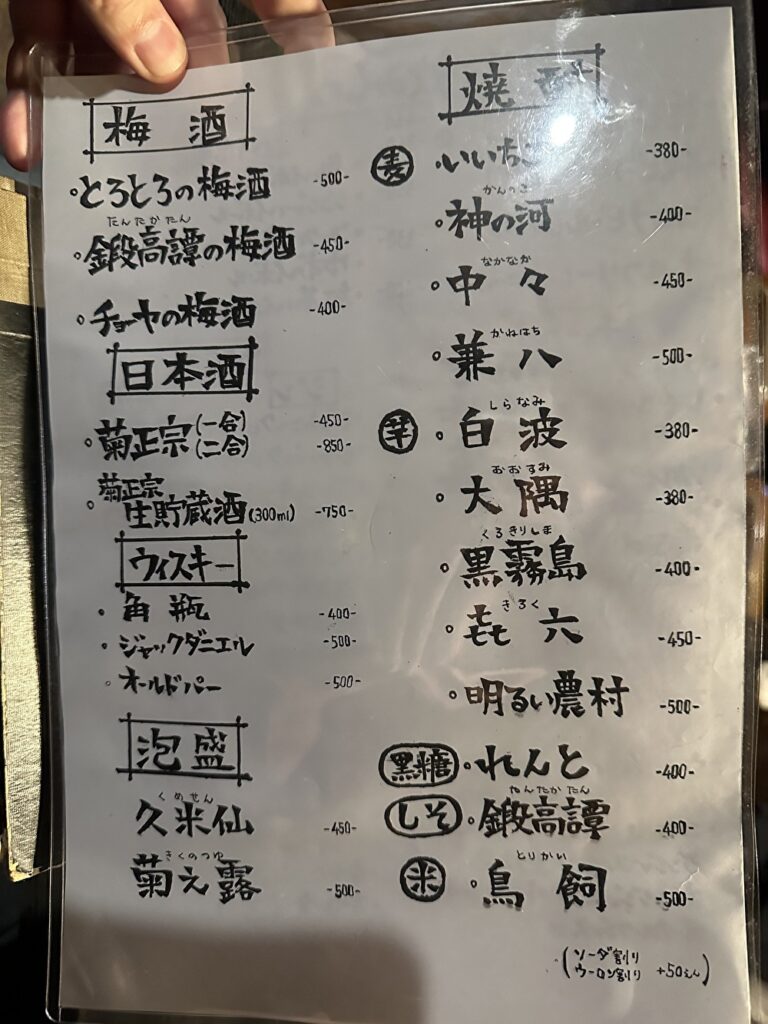 梅酒
・とろとろの梅酒 -500-
たんたかたん
・鍛高譚の梅酒 -450-
・チョーヤの梅酒 -400-
日本酒
・菊正宗(一合) -450-
(二合) -850-
・菊正宗
生貯蔵酒(300ml) -750-
ウィスキー
・角瓶 -400-
・ジャックダニエル -500-
・オールドパー -500-
泡盛
くめせん
久米仙 -450-
きくのつゆ
菊之露 -500-
焼酎
麦 ・いいちこ -380-
かんのこ
・神の河 -400-
なかなか
・中々 -450-
かねはち
・兼八 -500-
しらなみ
芋 ・白波 -380-
おおすみ
・大隅 -380-
くろきりしま
・黒霧島 -400-
きろく
・㐂六 -450-
・明るい農村 -500-
黒糖 ・れんと -400-
たんたかたん
しそ ・鍛高譚 -400-
とりかい
米 ・鳥飼 -500-
(ソーダ割り
ウーロン割り +50えん)